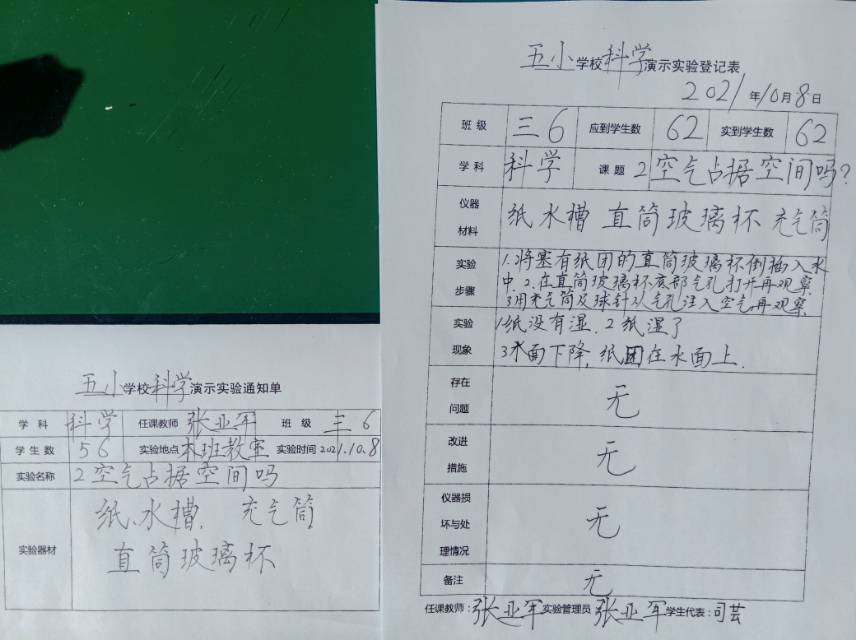 五小学校科学演示实验通知单
学科 科学 任课教师 张亚军 班级 三6
学生数 56 实验地点 本班教室 实验时间 2021.10.8
实验名称 2空气占据空间吗
实验器材 纸、水槽. 充气筒
直筒玻璃杯
五小学校科学演示实验登记表
2021年10月8日
班级 三6 应到学生数 62 实到学生数 62
学科 科学 课题 2空气占据空间吗?
仪器材料 纸 水槽 直筒玻璃杯 充气筒
实验步骤 1.将塞有纸团的直筒玻璃杯倒插入水
中.2.在直筒玻璃杯底部气孔打开再观察.
3用充气筒及球针从气孔注入空气再观察.
实验现象 1.纸没有湿.2纸湿了
3水面下降,纸团在水面上.
存在问题 无
改进措施 无
仪器损坏与处理情况 无
备注 无
任课教师:张亚军 实验管理员 张亚军 学生代表:司芸